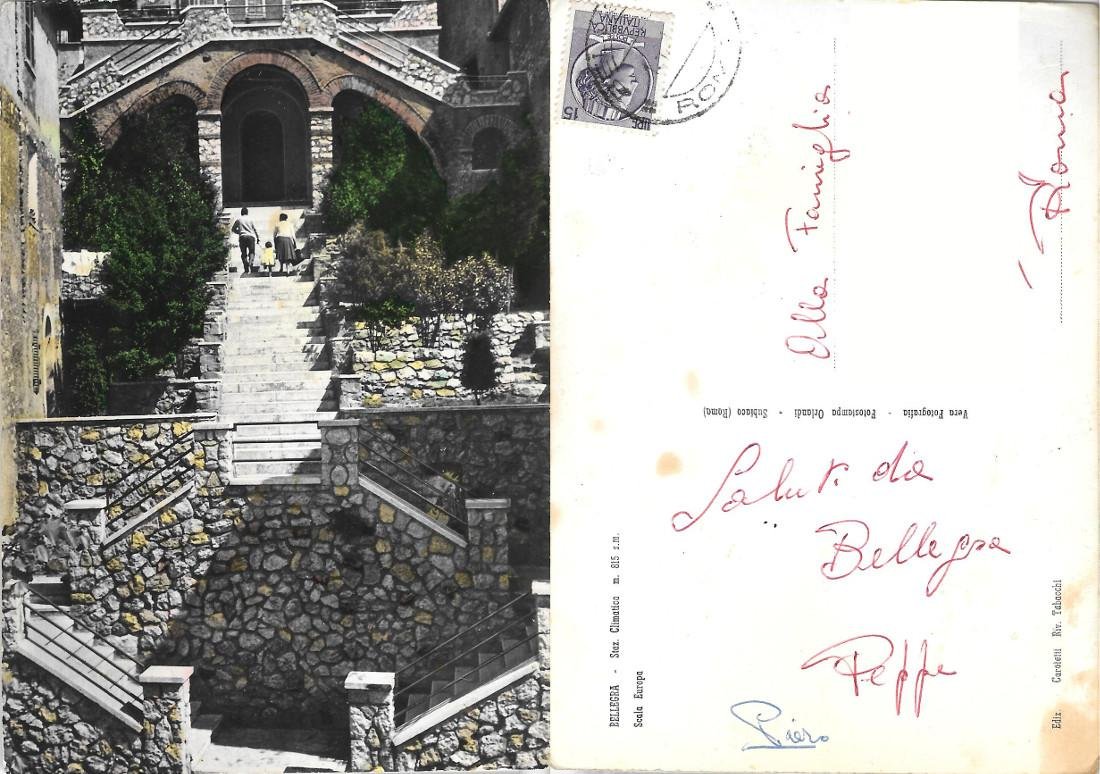 BELLEGRA - Staz. Climatica m. 815 s.m.
Scala Europa
Saluti da
Bellegra
Peppe
Piero
Ediz. Caroletti Riv. Tabacchi
Vera Fotografia - Fotostampa Orlandi - Subiaco (Roma)
REPVBBLICA
ITALIANA
POSTE
LIRE 15
ROM
Alla Famiglia
Roma